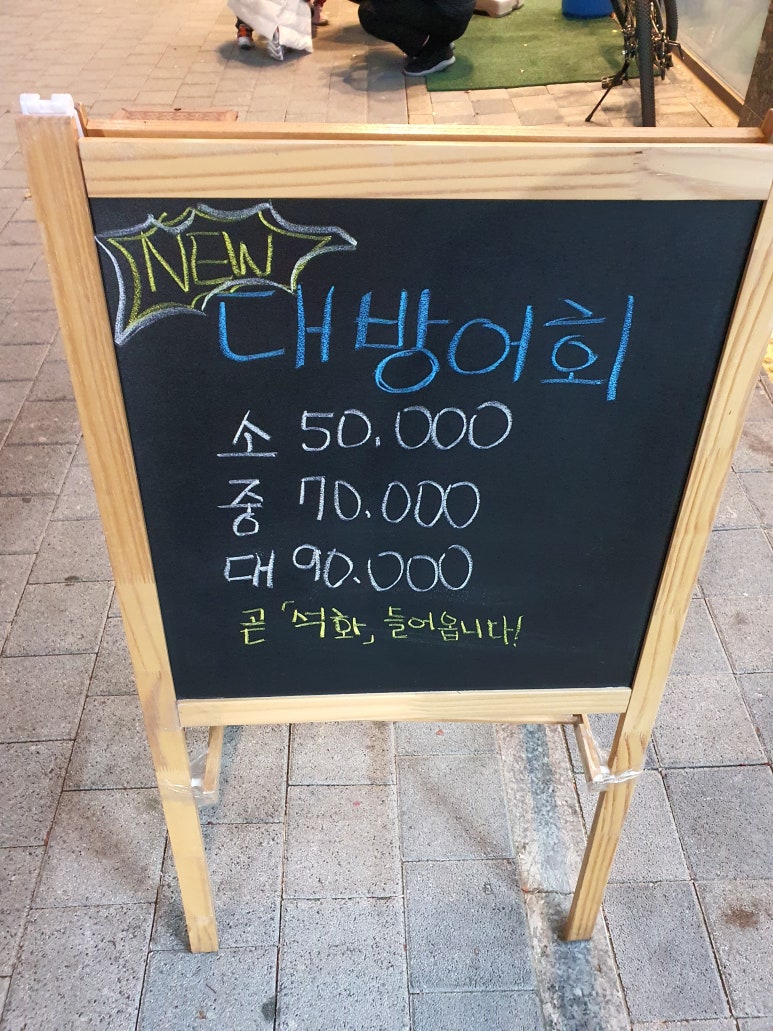 NEW
대방어회
소 50.000
중 70.000
대 90.000
곧 「석화」 들어옵니다!